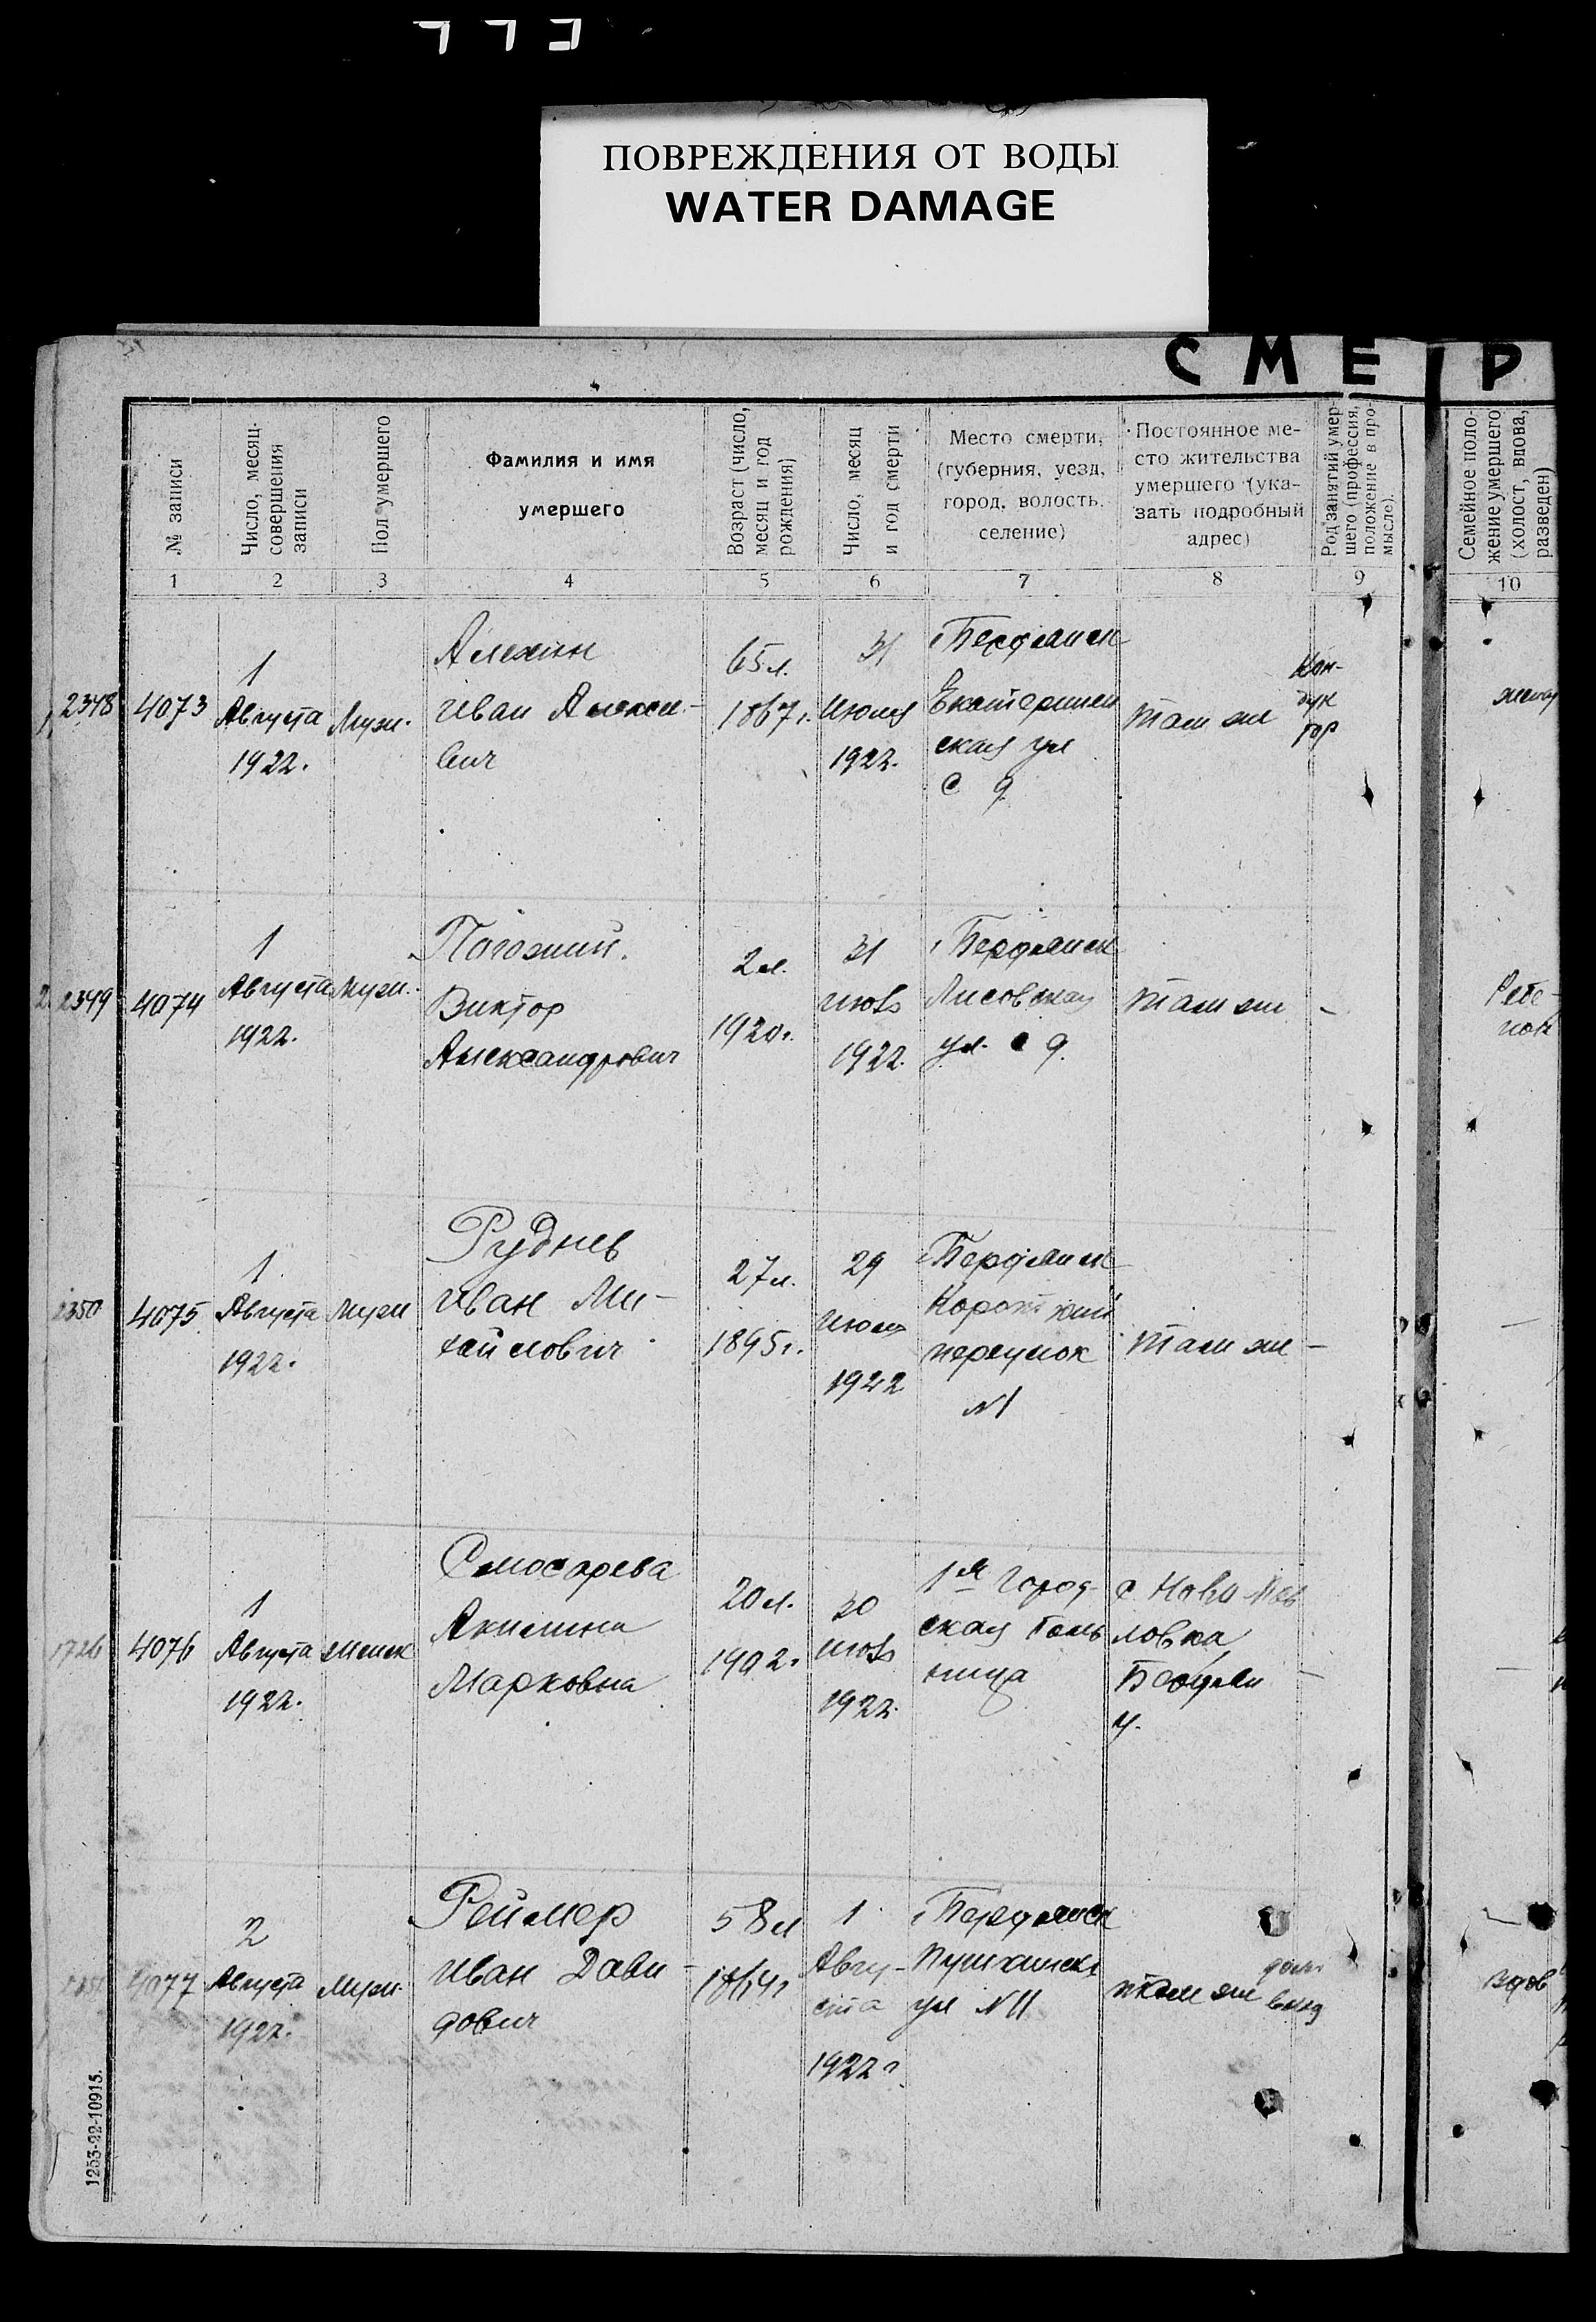 ПОВРЕЖДЕНИЯ ОТ ВОДЫ
WATER DAMAGE
СМЕР
№ записи
Число, месяц- совершения записи
Пол умершего
Фамилия и имя
умершего
Возраст (число, месяц и год рождения)
Число, месяц и год смерти
Место смерти,
(губерния, уезд,
город, волость,
селение)
Постоянное ме-
сто жительства
умершего (ука-
зать подробный
адрес)
Род занятий умер-
шего (профессия,
положение в про-
мысле).
Семейное поло-
жение умершего
(холост, вдова,
разведен)
1 2 3 4 5 6 7 8 9 10
2348 4073
1
Августа
1922.
Муж.
Алехин
Иван Алексе-
вич
65 л.
1867 г.
31
Июля
1922.
Бердянск
Екатеринин
ская ул
с д
там же
Кон-
дук
тор
2 2349 4074
1
Августа
1922.
Муж.
Погожий.
Виктор
Александрович
2 л.
1920 г.
31
1922.
Бердянск
Лисовская
ул. с д.
там же
-
Ребе-
нок
2350 4075
1
Августа
1922.
Муж
Руднев
Иван Ми-
хайлович
27 л.
1895 г.
29
Июля
1922
Бердянск
Короткий
переулок
№ 1
там же
-
1726 4076
1
Августа
1922.
женск
Слюсарева
Акилина
Марковна
20 л.
1902 г
30
1922.
1я Город-
ская боль
ница
с. Ново-Пав
ловка
Бердян
у.
-
4077
2
Августа
1922.
Муж.
Реймер
Иван Дави-
дович
58 л
1864 г
1
Авгу-
ста
1922 г.
Бердянск
Пушкинск
ул № 11
там же
вдов
1253-22-10915.